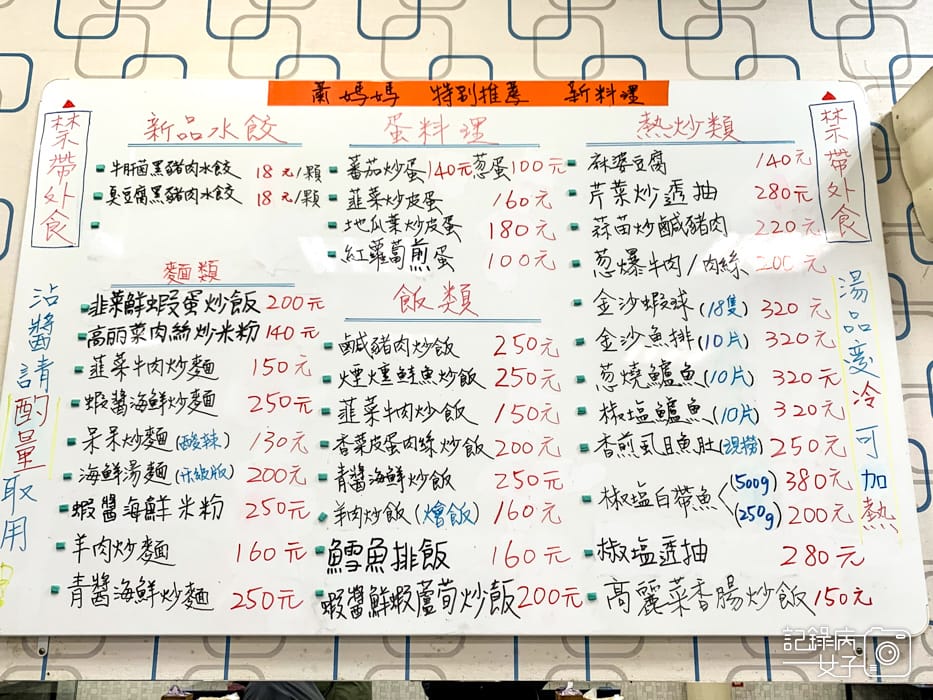 蕭媽媽 特別推薦 新料理
禁帶外食
新品水餃
牛肝菌黑豬肉水餃 18元/顆
臭豆腐黑豬肉水餃 18元/顆
麵類
韭菜鮮蝦蛋炒飯 200元
高麗菜肉絲炒米粉 140元
韭菜牛肉炒麵 150元
蝦醬海鮮炒麵 250元
呆呆炒麵(酸辣) 130元
海鮮湯麵(升級版) 200元
蝦醬海鮮米粉 250元
羊肉炒麵 160元
青醬海鮮炒麵 250元
蛋料理
蕃茄炒蛋140元 蔥蛋100元
韭菜炒皮蛋 160元
地瓜葉炒皮蛋 180元
紅蘿蔔煎蛋 100元
飯類
鹹豬肉炒飯 250元
煙燻鮭魚炒飯 250元
韭菜牛肉炒飯 150元
香菜皮蛋肉絲炒飯 200元
青醬海鮮炒飯 250元
羊肉炒飯(燴飯) 160元
鱈魚排飯 160元
蝦醬鮮蝦蘆筍炒飯 200元
熱炒類
麻婆豆腐 140元
芹菜炒透抽 280元
蒜苗炒鹹豬肉 220元
蔥爆牛肉/肉絲 200元
金沙蝦球(18隻) 320元
金沙魚排(10片) 320元
蔥燒鱸魚(10片) 320元
椒塩鱸魚(10片) 320元
香煎虱目魚肚(現撈) 250元
椒塩白帶魚 (500g) 380元
(250g) 200元
椒塩透抽 280元
高麗菜香腸炒飯 150元
禁帶外食
沾醬請酌量取用
湯品變冷可加熱
記錄內女子